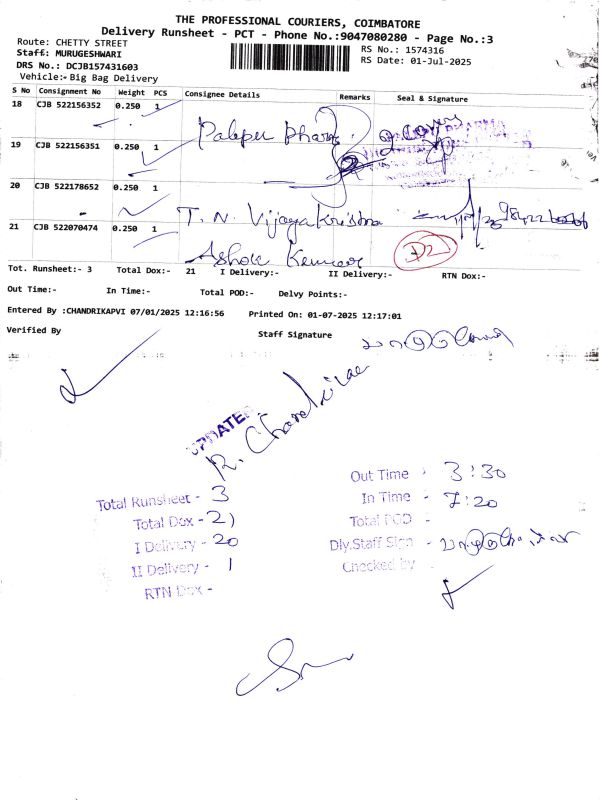 THE PROFESSIONAL COURIERS, COIMBATORE
Delivery Runsheet - PCT - Phone No.:9047080280 - Page No.:3
Route: CHETTY STREET
Staff: MURUGESHWARI
DRS No.: DCJB157431603
Vehicle:- Big Bag Delivery
RS No.: 1574316
RS Date: 01-Jul-2025
S No Consignment No Weight PCS Consignee Details Remarks Seal & Signature
18 CJB 522156352 0.250 1
19 CJB 522156351 0.250 1
20 CJB 522178652 0.250 1 T. N. Vijayakrishna
21 CJB 522070474 0.250 1 Ashok Kumar D2
Tot. Runsheet:- 3 Total Dox:- 21 I Delivery:- II Delivery:- RTN Dox:-
Out Time:- In Time:- Total POD:- Delvy Points:-
Entered By :CHANDRIKAPVI 07/01/2025 12:16:56 Printed On: 01-07-2025 12:17:01
Verified By Staff Signature
UPDATED
Total Runsheet - 3
Total Dox - 21
I Delivery - 20
II Delivery - 1
RTN Dox -
Out Time - 3:30
In Time - 7:20
Total POD -
Dly.Staff Sign -
Checked by